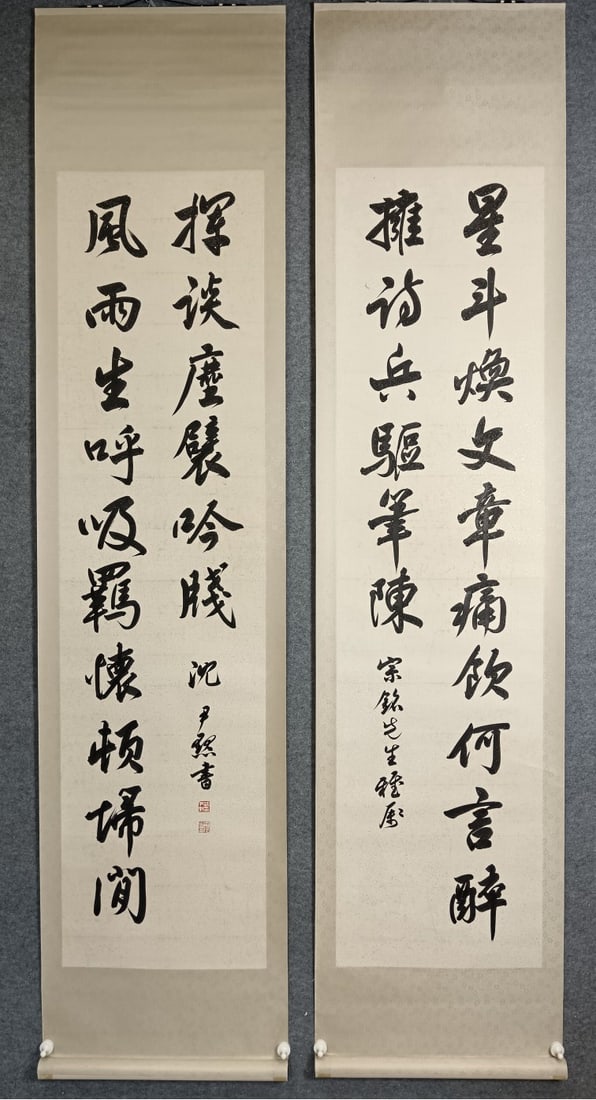 星斗煥文章痛飲何言醉
擁詩兵驅筆陳
宗銘先生雅屬
風雨生呼吸羈懷頓埽閒
揮談麈襞吟牋
沈尹默書